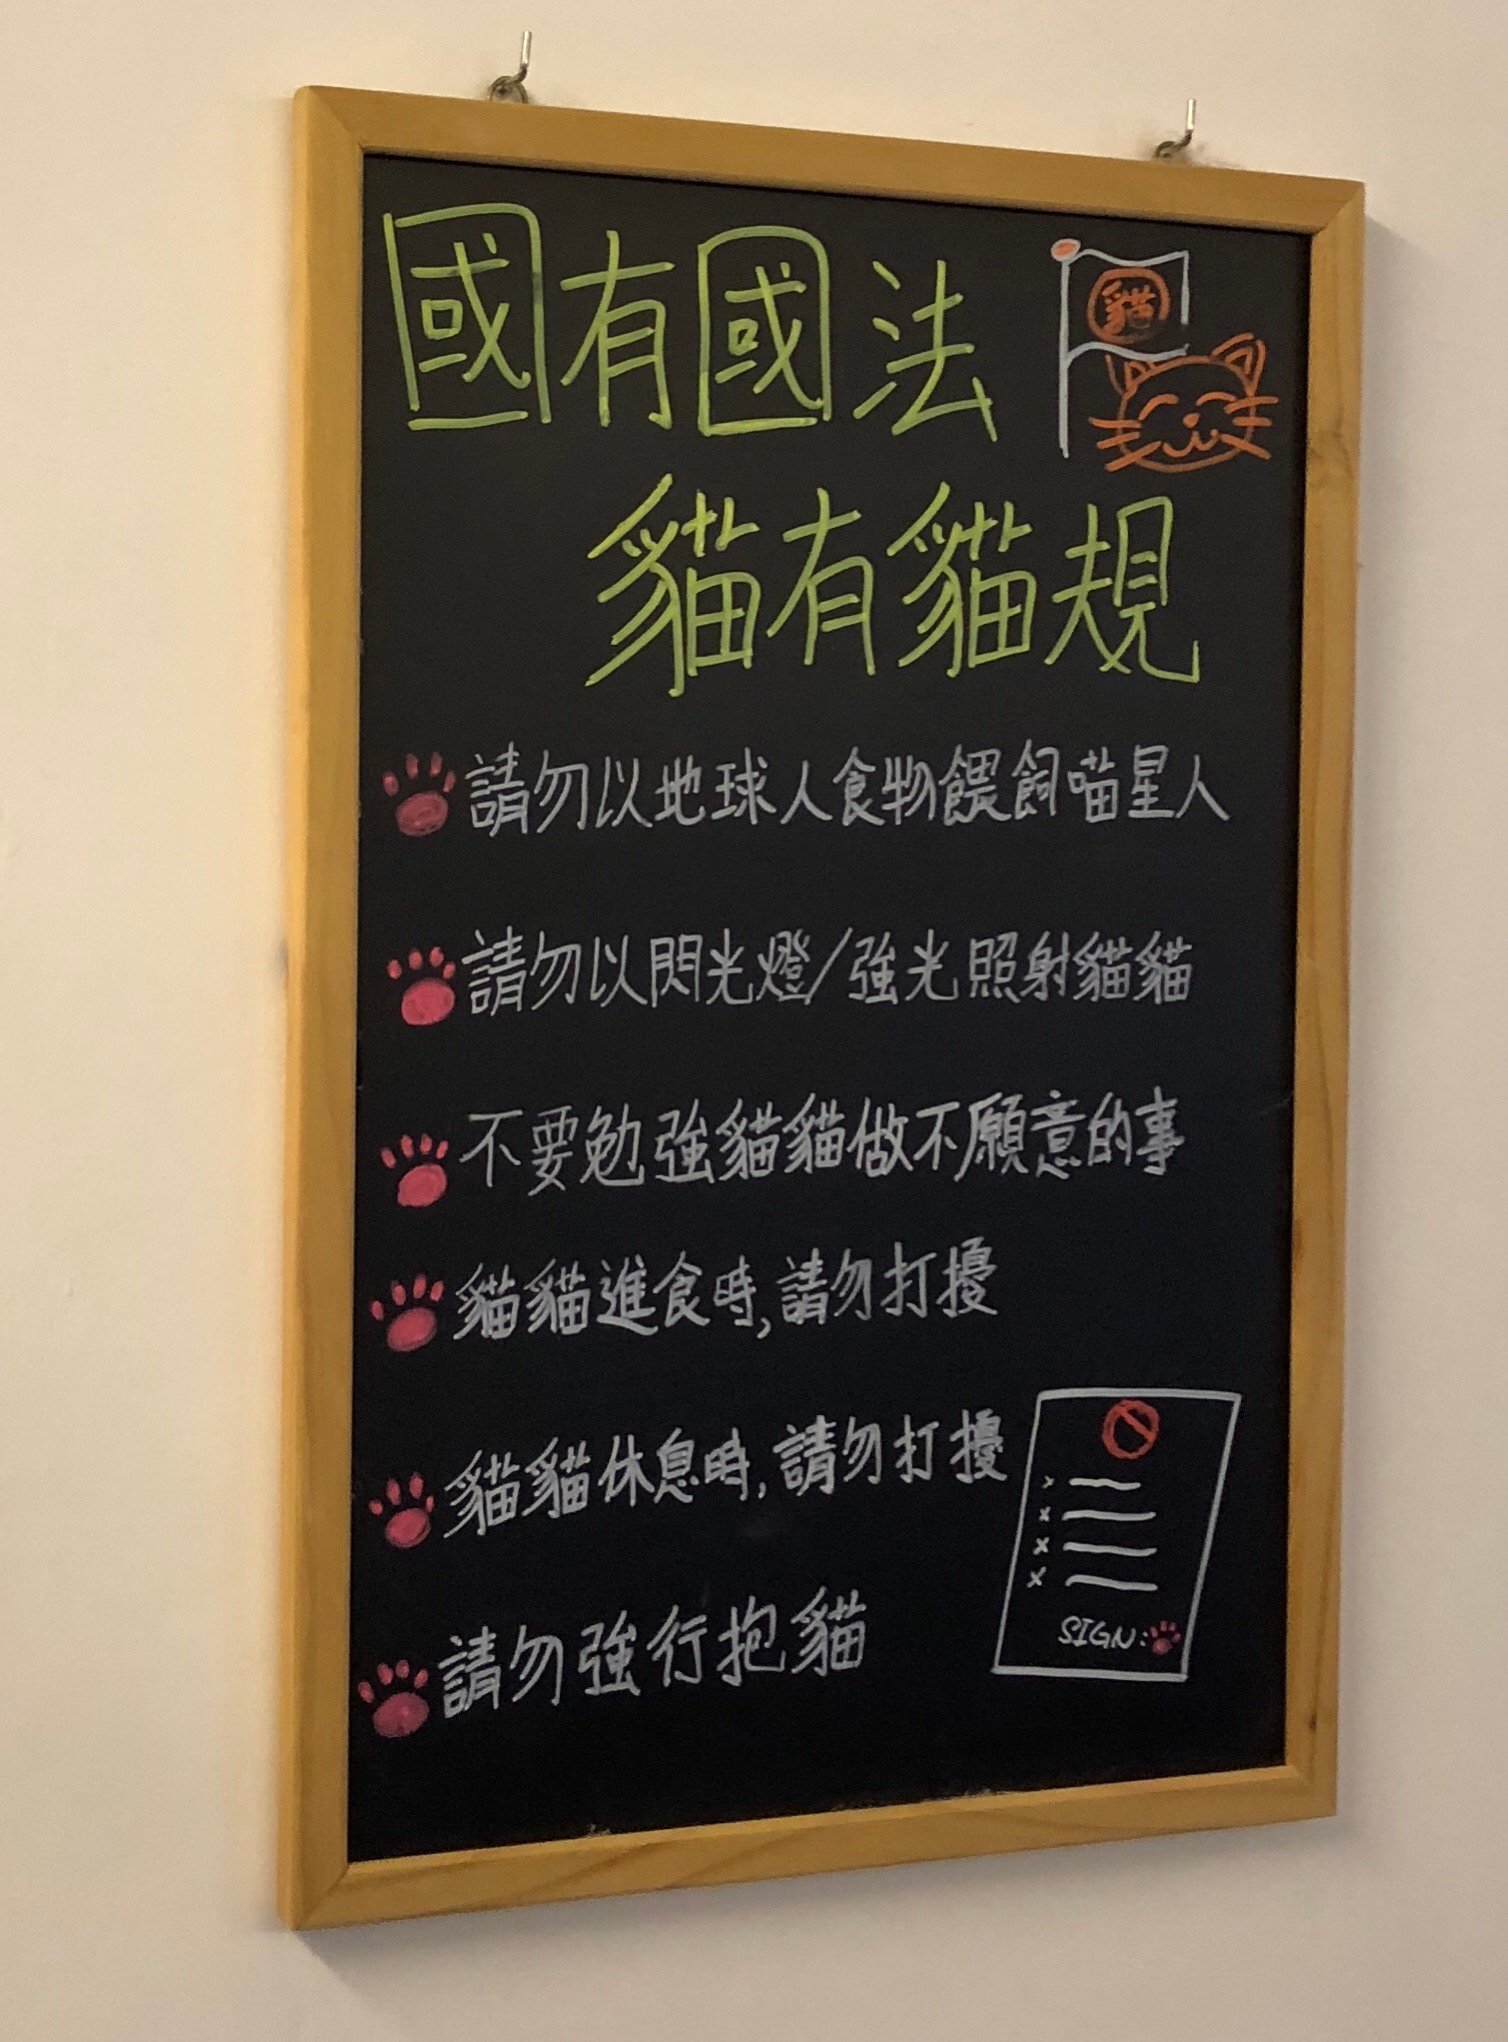 國有國法
貓
貓有貓規
請勿以地球人食物餵飼喵星人
請勿以閃光燈/強光照射貓貓
不要勉強貓貓做不願意的事
貓貓進食時,請勿打擾
貓貓休息時,請勿打擾
請勿強行抱貓
SIGN: